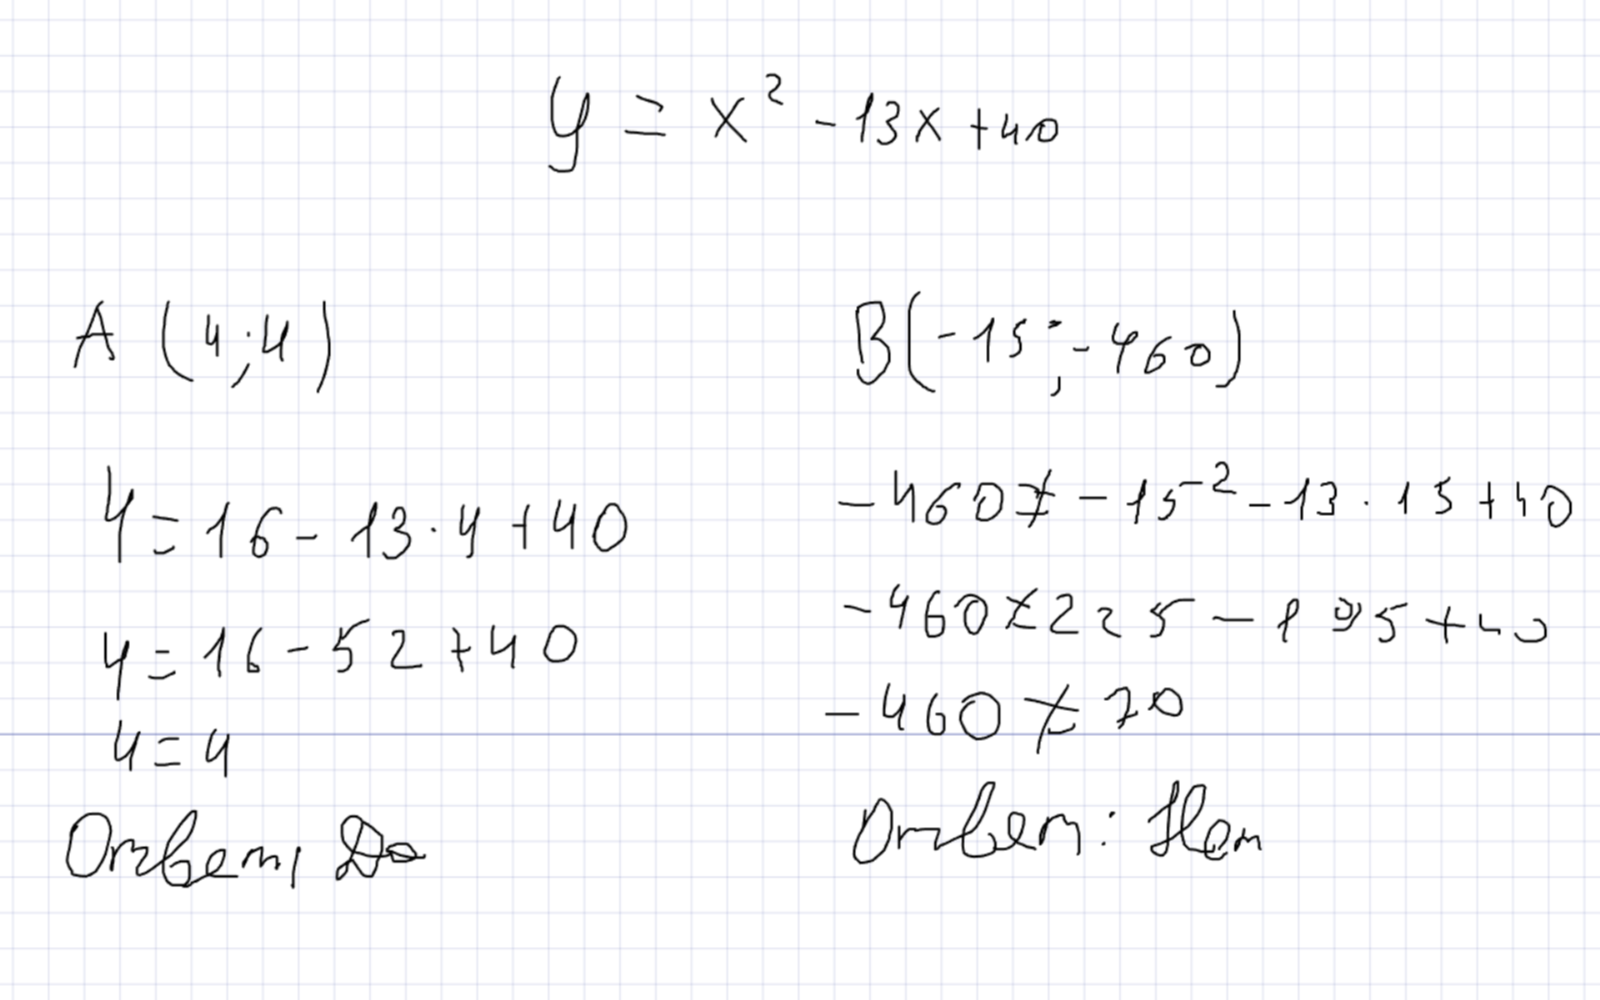 y = x² - 13x + 40
A (4;4)
4 = 16 - 13 · 4 + 40
4 = 16 - 52 + 40
4 = 4
Ответ, Да
B(-15;-460)
-460 ≠ -15² - 13 · 15 + 40
-460 ≠ 225 - 195 + 40
-460 ≠ 70
Ответ: Нет